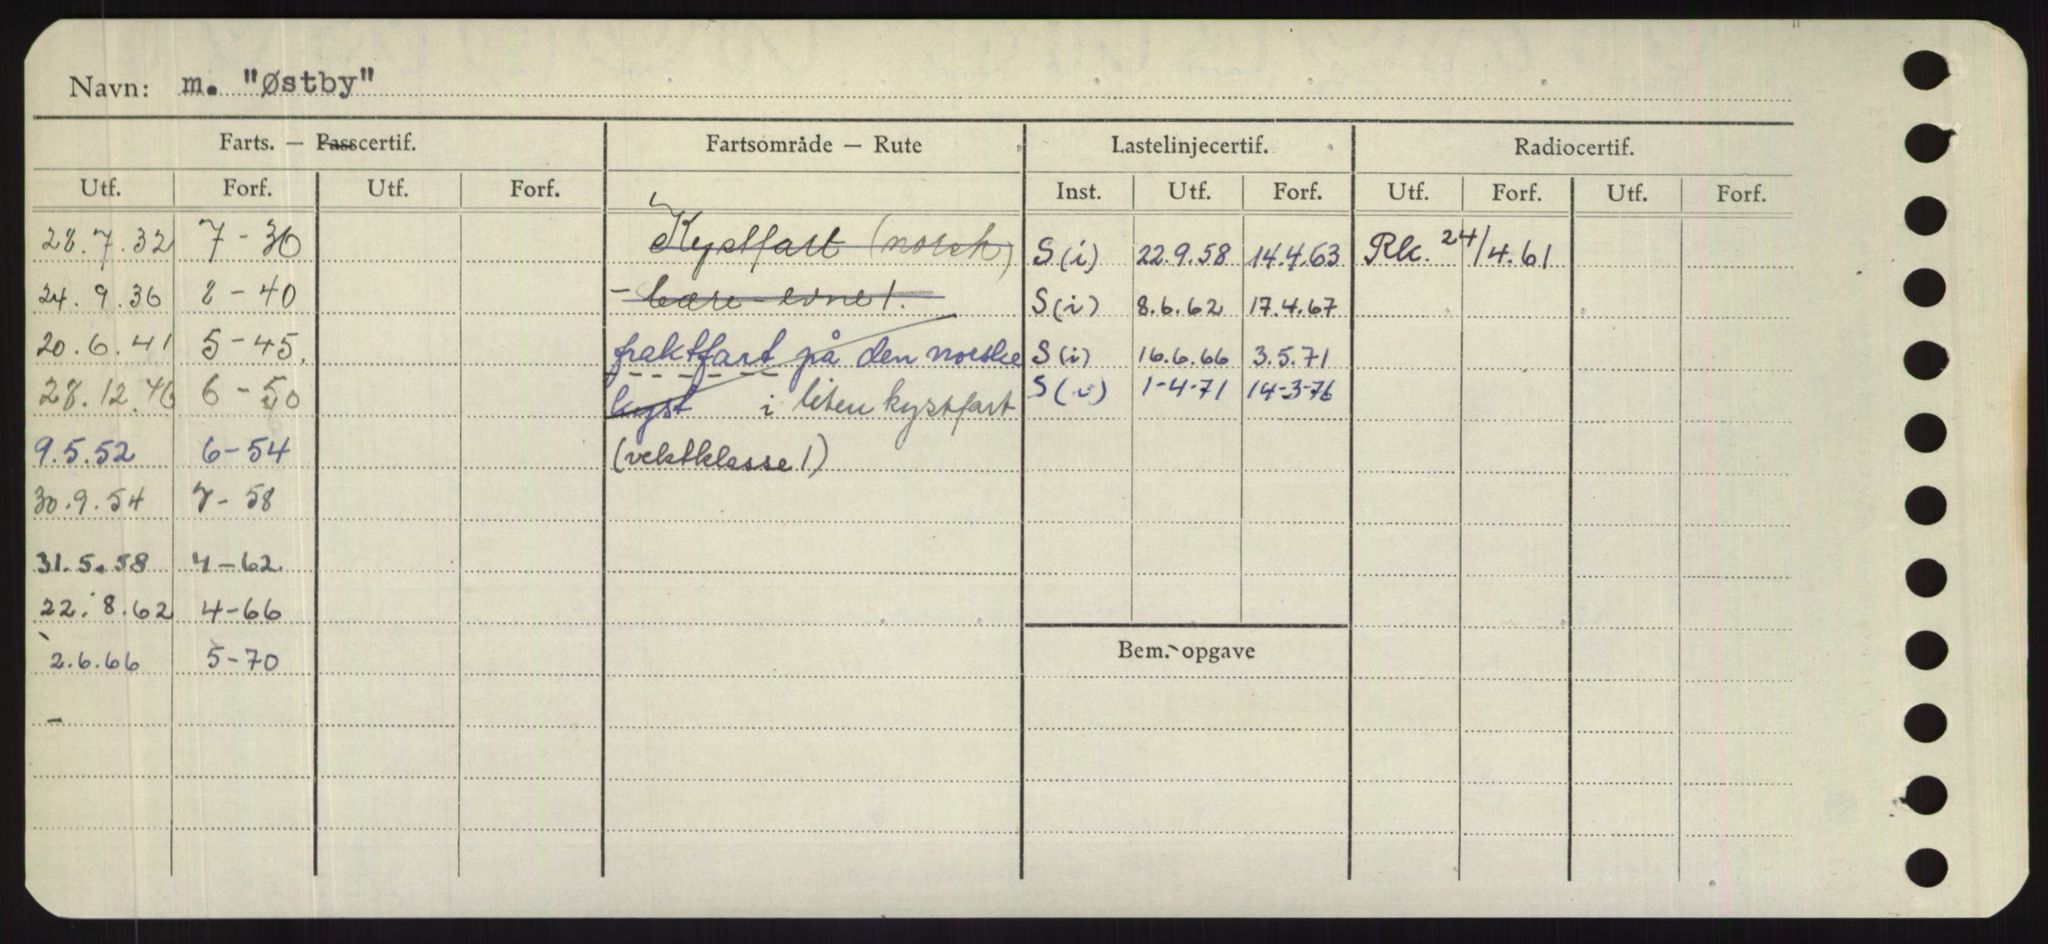 Navn: m. "Østby"
Farts. — Passcertif. Fartsområde — Rute Lastelinjecertif. Radiocertif.
Utf. Forf. Utf. Forf. Inst. Utf. Forf. Utf. Forf. Utf. Forf.
28.7.32 7-36 Kystfart (norsk) S(i) 22.9.58 14.4.63 Rk. 24/4.61
24.9.36 8-40 - bære-evne 1. S(i) 8.6.62 17.4.67
20.6.41 5-45. fraktfart på den norske S(i) 16.6.66 3.5.71
28.12.46 6-50 kyst i liten kystfart S(i) 1-4-71 14-3-76
9.5.52 6-54 (vektklasse 1)
30.9.54 7-58
31.5.58 4-62
22.8.62 4-66
2.6.66 5-70
Bem.-opgave